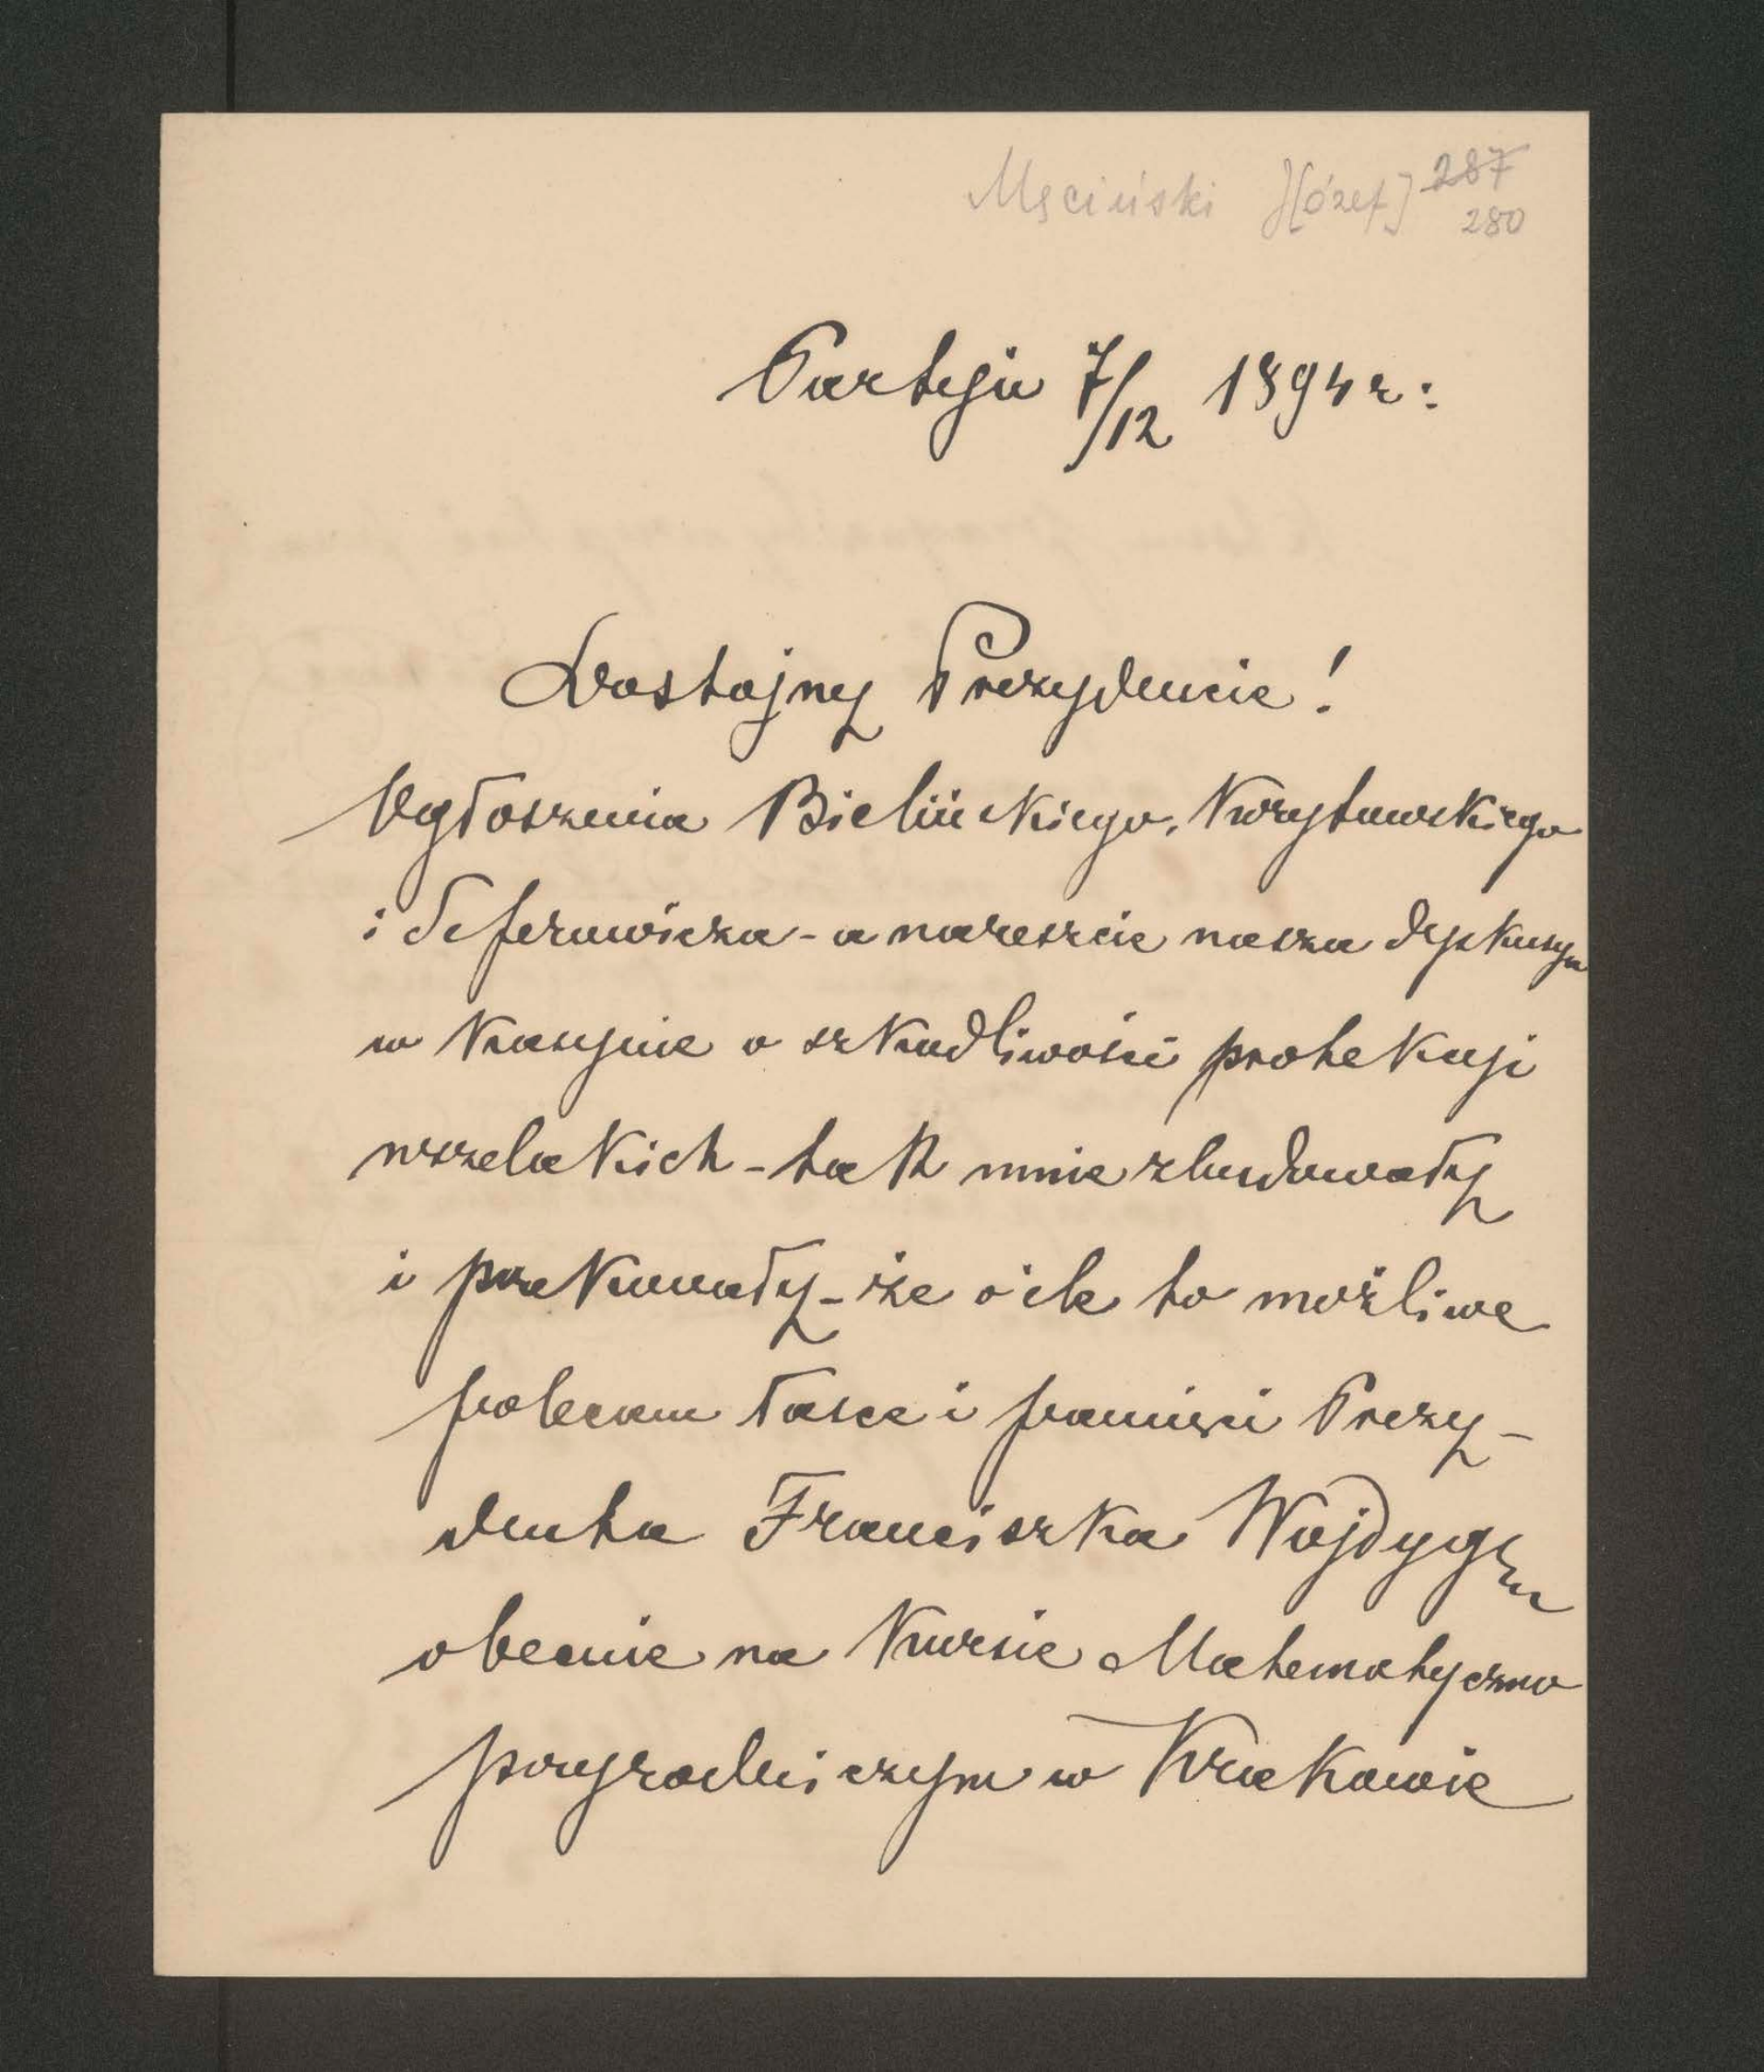 Męciński J[ózef] 287
280
Partyń 7/12 1894 r:
Dostojny Prezydencie!
Ogłoszenia Bielińskiego, Korytowskiego
i Seferowicza - a nareszcie nasza dyskusya
w Kasynie o szkodliwości protekcji
wszelakich - tak mnie zbudowały
i przekonały - że o ile to możliwe
polecam łasce i pamięci Prezy-
denta Franciszka Wojdygę
obecnie na Kursie Matematyczno
przyrodniczym w Krakowie